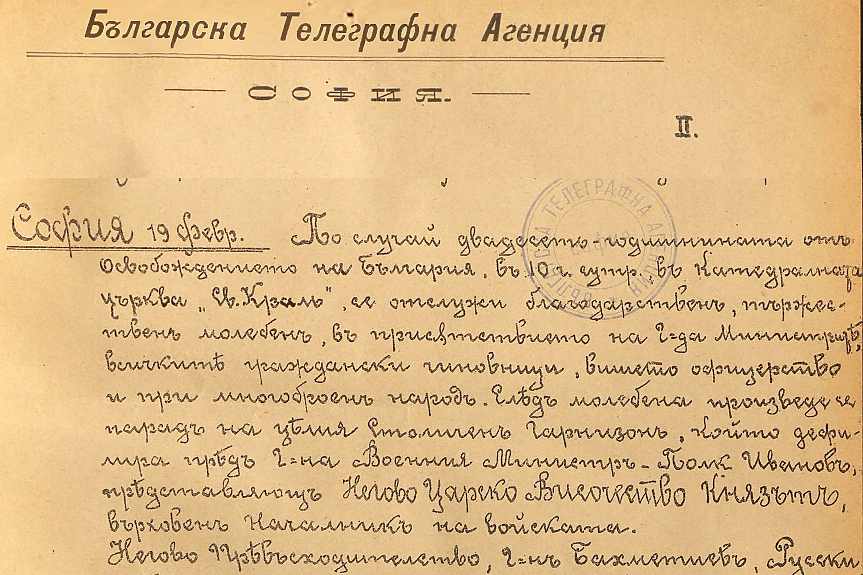 Българска Телеграфна Агенция
— СОФИЯ. —
II.
ТЕЛЕГРАФНА
София 19 Февр. По случай двадесетъ-годишнината отъ
освобождението на България, въ 10 ч. сутр., въ Катедралната
църква „Св. Краль", се отслужи благодарственъ, тържес-
твенъ молебенъ, въ присѫтствието на г-да Министритѣ,
всичкитѣ граждански чиновници, висшето офицерство
и при многоброенъ народъ. Слѣдъ молебена произведе се
парадъ на цѣлия Столиченъ Гарнизонъ, който дефи-
лира прѣдъ г-на Военния Министръ - Полк. Ивановъ,
прѣдставляющъ Негово Царско Височество Князътъ,
върховенъ Началникъ на войската.
Негово Прѣвъсходителство, г-нъ Бахметиевъ, Русски